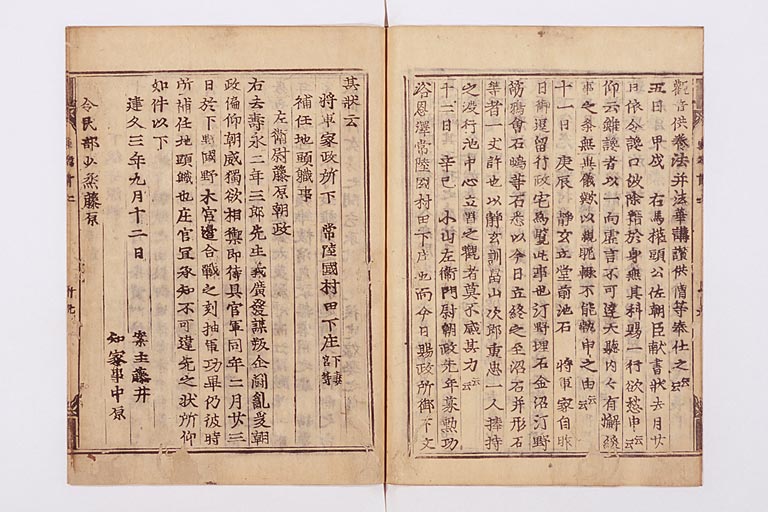 觀音供養法并法華講讃供僧等奉仕之云云
五日 甲戌 右馬權頭公佐朝臣献書状去月廿
日依令讒口仗除籍於身無其科賜一行欲愁申云云
仰云雖讒者以一向虚言不可達天聽内々有懈緩
事之条無異儀歟以親昵縁不能執申之由云云
十一日 庚辰 静玄立堂前池石 將軍家自昨
日御逗留行政宅為覧此事也汀野埋石金沼汀野
筋鵜會石嶋等石悉以今日立終之至沼石并形石
等者一丈許也以静玄訓畠山次郎重忠一人捧持
之渡行池中心立置之觀者莫不感其力云云
十二日 辛巳 小山左衛門尉朝政先年募勲功
浴恩澤常陸國村田下庄也而今日賜政所御下文
其状云
將軍家政所下 常陸國村田下庄下妻宮等
補任地頭職事
左衛尉藤原朝政
右去壽永二年三郎先生義廣發謀叛企闘亂爰朝
政偏仰朝威獨欲相禦即待具官軍同年二月廿三
日於下野國野木宮邊合戰之刻抽軍功畢仍彼時
所補任地頭職也庄官宜承知不可違失之状所仰
如件以下
建久三年九月十二日 案主藤井
知家事中原
令民部少烝藤原